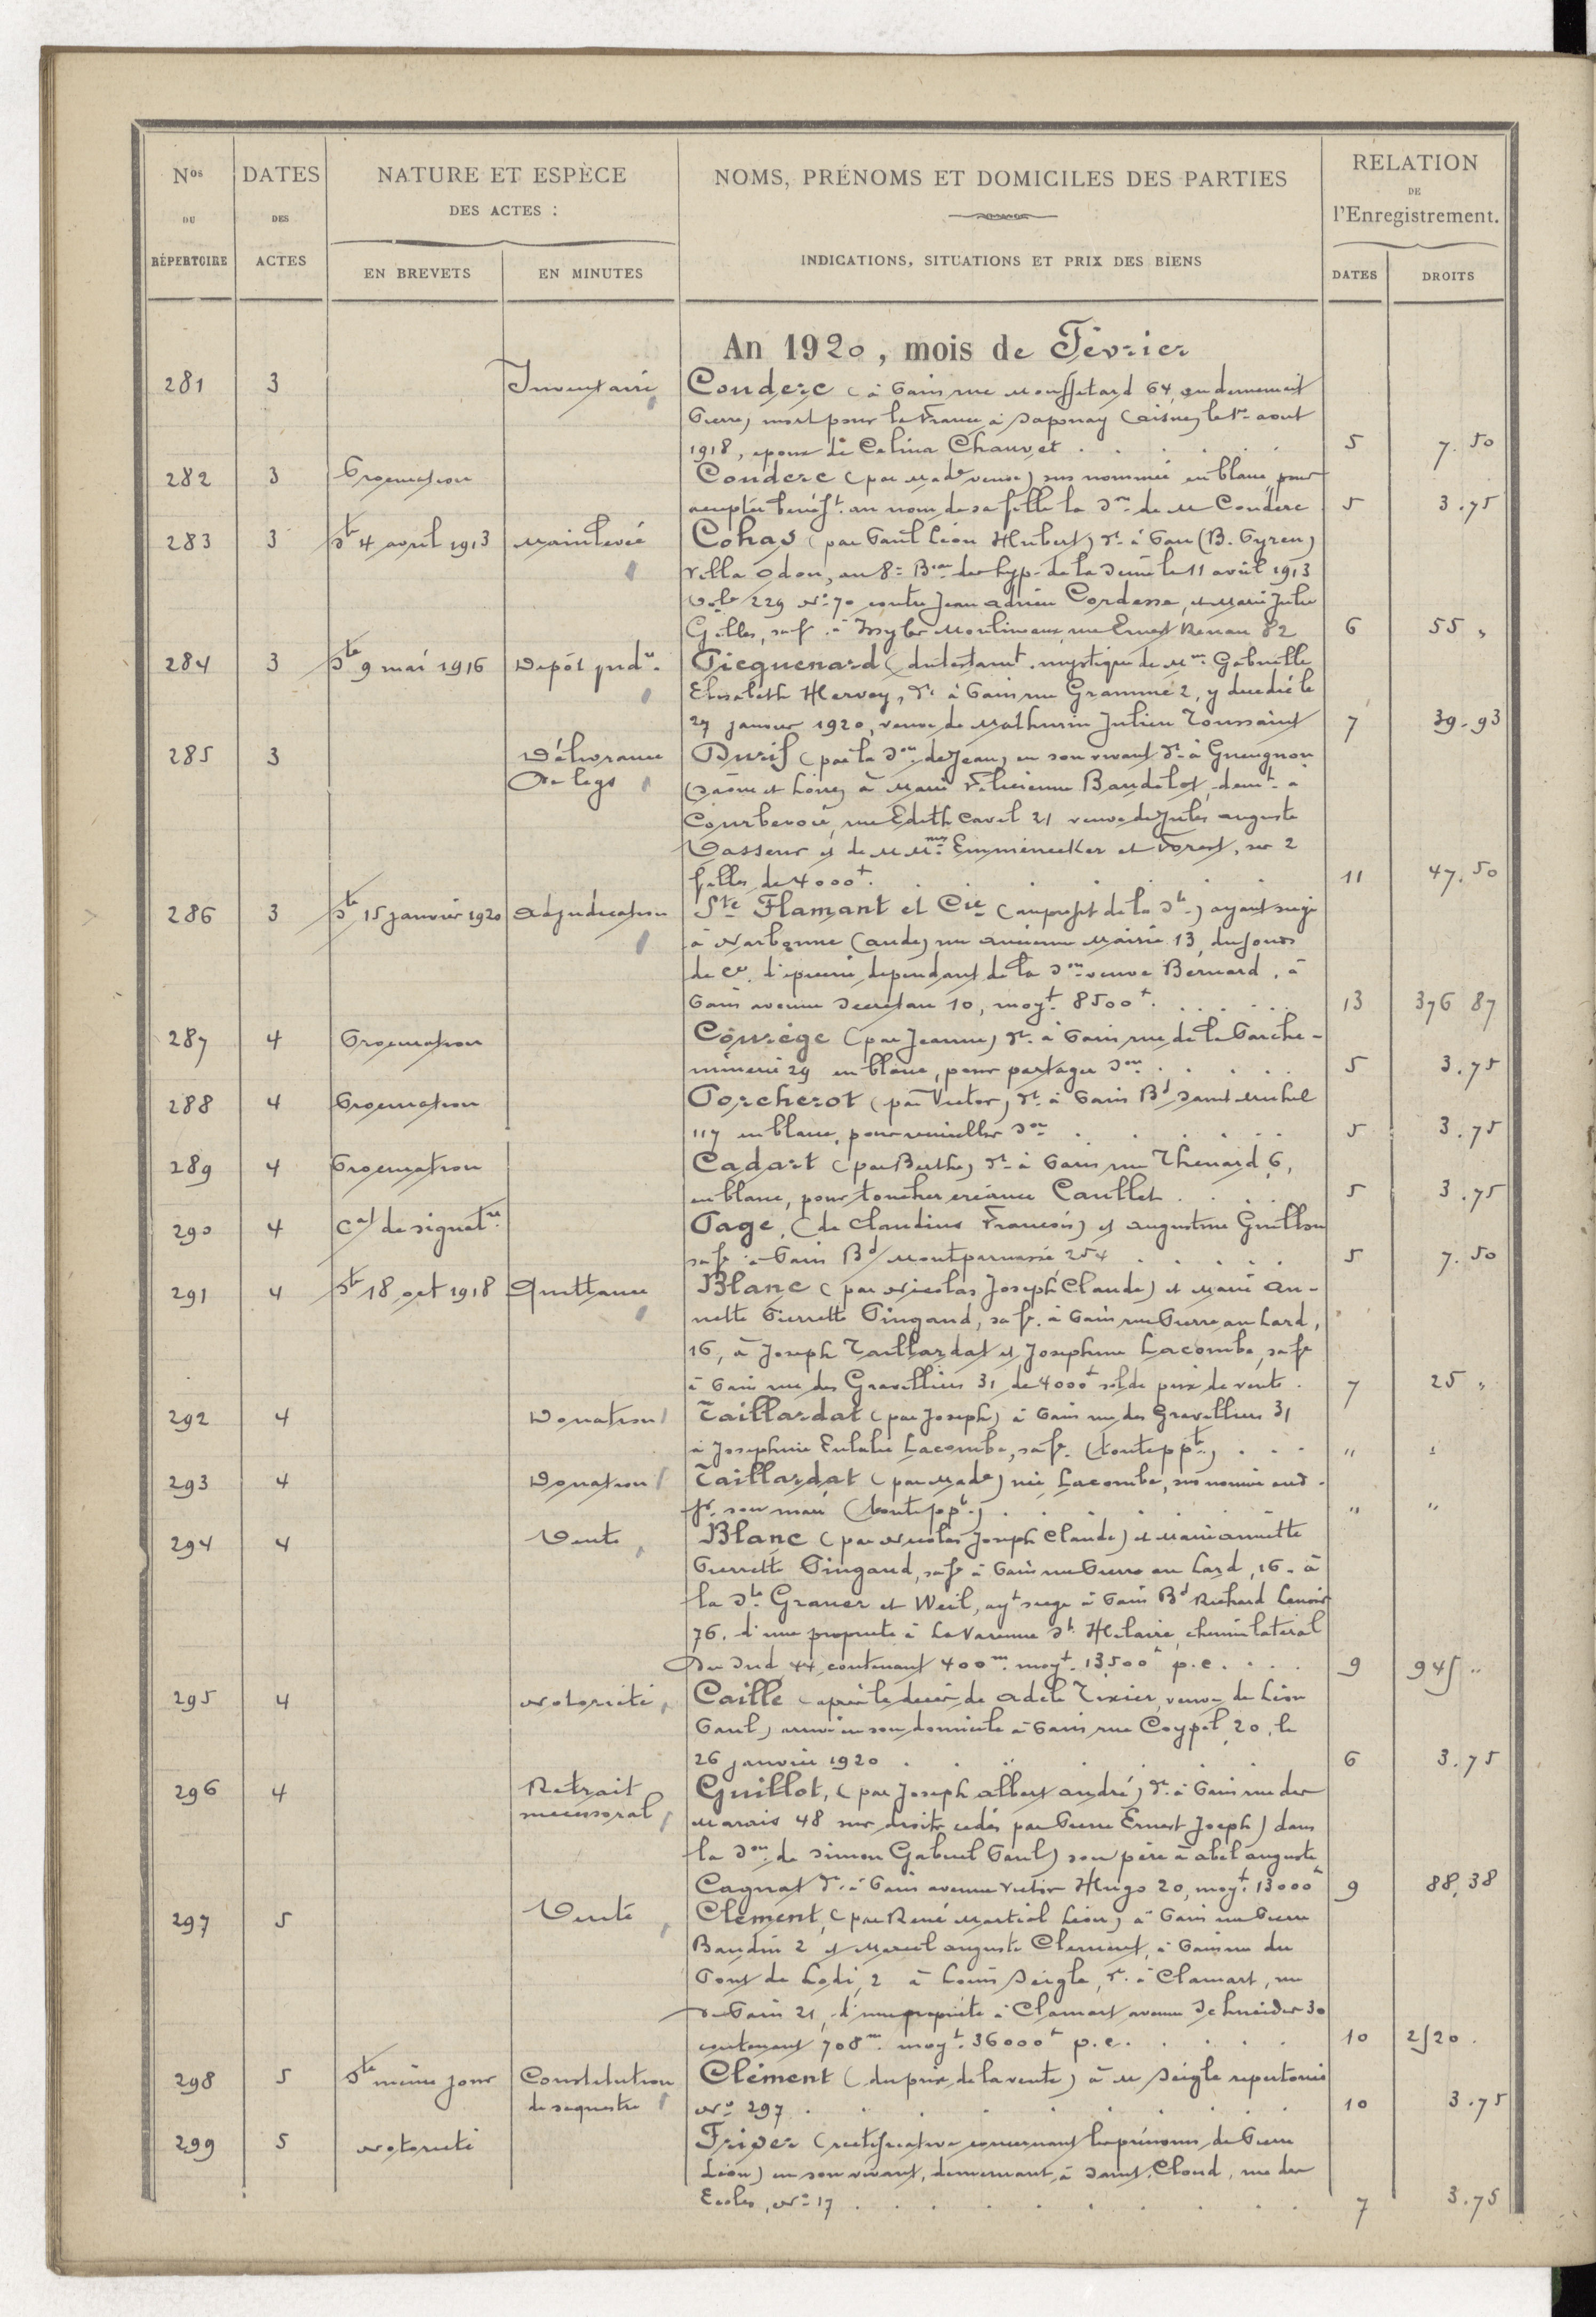 Nos DU RÉPERTOIRE
DATES DES ACTES
NATURE ET ESPÈCE DES ACTES :
EN BREVETS
EN MINUTES
NOMS, PRÉNOMS ET DOMICILES DES PARTIES
INDICATIONS, SITUATIONS ET PRIX DES BIENS
RELATION DE l'Enregistrement.
DATES
DROITS
An 1920, mois de Février
281 3 Inventaire Couderc (à Paris rue Mouffetard 64, en dernement
Pierre) mort pour la France à Saponay (Aisne) le 1er aout
1918, epoux de Celina Chauvet . 5 7.50
282 3 Procuration Couderc (par Made veuve) sus nommée en blanc, pour
accepter bénéft. au nom de sa fille la Son de M Couderc 5 3.75
283 3 Ste 4 avril 1913 Mainlevée Cohas (par Paul Léon Hubert) dt. à Pau (B. Pyren)
villa Odon, au 8e Beau des hyp. de la Seine le 11 avril 1913
vole 229 No 70 contre Jean Adrien Cordesse, et Marie Julie
Gilles, sa f. à Issy les Moulineaux, rue Ernest Renan 82 6 55 "
284 3 Ste 9 mai 1916 Depôt judre. Picquenard (du testamt. mystique de Mme Gabrielle
Elisabeth Hervoy, dt à Paris rue Gramme 2, y decedée le
27 janvier 1920, veuve de Mathurin Julien Toussaint 7 39.93
285 3 Délivrance de legs Durif (par la Son de Jean) en son vivant dt. à Gueugnon
(Saône et Loire) à Marie Felicienne Baudelot, demt. à
Courbevoie, rue Edith Cavel 21 veuve de Jules Auguste
Vasseur et de M Mmes Emmenecker et Forest, ses 2
filles de 4000f. 11 47.50
286 3 Ste 15 janvier 1920 Adjudication Sté Flamant et Cie (au profit de la Sté) ayant siege
à Narbonne (Aude) rue Ancienne Mairie 13, du fonds
de Ce. d'epicerie, dependant de la Son veuve Bernard, à
Paris avenue Secretan 10, moyt. 8500f. 13 376 87
287 4 Procuration Corrège (par Jeanne) dt. à Paris rue de la Parche-
minerie 29 en blanc, pour partager Son . 5 3.75
288 4 Procuration Porcherot (par Victor) dt. à Paris Bd Saint Michel
117 en blanc, pour recueillir Son . 5 3.75
289 4 Procuration Cadart (par Berthe) dt. à Paris rue Thenard 6,
en blanc, pour toucher créance Caullet . 5 3.75
290 4 Cat de signatre Page, (de Claudius François) et Augustine Guillon
sa f. à Paris Bd Montparnasse 254 . 5 7.50
291 4 Ste 18 oct 1918 Quittance Blanc (par Nicolas Joseph Claude) et Marie An-
nette Pierrette Pingaud, sa f. à Paris rue Pierre au Lard,
16, à Joseph Taillardat et Josephine Lacombe, sa f.
à Paris rue des Gravilliers 31 de 4000f solde prix de vente . 7 25 "
292 4 Donation Taillardat (par Joseph) à Paris rue des Gravilliers 31
à Josephine Eulalie Lacombe, sa f. (toute ppté) . . . " "
293 4 Donation Taillardat (par Made) née Lacombe, sus nommée aud.
sr. son mari (toute ppté) . " "
294 4 Vente Blanc (par Nicolas Joseph Claude) et Marie Annette
Pierrette Pingaud, sa f. à Paris rue Pierre au Lard, 16. à
la Sté Graner et Weil, ayt siege à Paris Bd Richard Lenoir
76. d'une propriete à La Varenne St Hilaire, chemin lateral
du Sud 44, contenant 400m. moyt. 13500f p.c. . . . 9 945 "
295 4 Notoriété Caille (après le decès de Adele Tixier, veuve de Léon
Paul) arrivé en son domicile à Paris, rue Coypel, 20, le
26 janvier 1920 . 6 3.75
296 4 Retrait successoral Guillot, (par Joseph Albert André) dt. à Paris rue des
Marais 48 sur droits cedés par Pierre Ernest Joseph) dans
la Son. de Simon Gabriel Paul) son père à Abel Auguste
Cagnat dt. à Paris avenue Victor Hugo 20, moyt. 13000f 9 88,38
297 5 Vente Clément, (par René Martial Léon) à Paris rue Pierre
Baudin 2 et Marcel Auguste Clement, à Paris rue du
Pont de Lodi, 2 à Louis Seigle, dt. à Clamart, rue
de Paris 21, d'une propriété à Clamart avenue Schneider 30
contenant 708m. moyt. 36000f p.c. . 10 2520.
298 5 Ste même jour Constitution de sequestre Clément (du prix de la vente) à M Seigle repertoriée
No 297 . 10 3.75
299 5 Notorieté Friser (rectificative concernant les prénoms de Pierre
Léon) en son vivant, demeurant à Saint Cloud, rue des
Ecoles, No 17 . 7 3.75